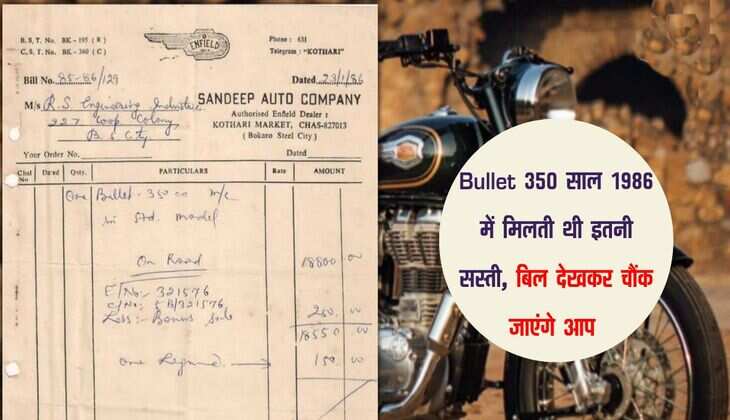 B. S. T. No. BK - 195 ( R )
C. S. T. No. BK - 360 ( C )
ENFIELD
Phone : 631
Telegram : "KOTHARI"
Bill No. 85-86/129
Dated 23/1/86
M/s R.S. Engineering Industries
227 Coop Colony
B. S. City
SANDEEP AUTO COMPANY
Authorised Enfield Dealer :
KOTHARI MARKET, CHAS-827013
( Bokaro Steel City )
Your Order No.
Dated
Chal No
Da'ed
Qnty.
PARTICULARS
Rate
AMOUNT
One Bullet - 350 cc m/c
in Std. model
On Road
18800 00
E/No:- 321576
C/No: 5 B/321576
Less:- Bonus
250. 00
18550 00
one
150. 00
Bullet 350 साल 1986
में मिलती थी इतनी
सस्ती, बिल देखकर चौंक
जाएंगे आप